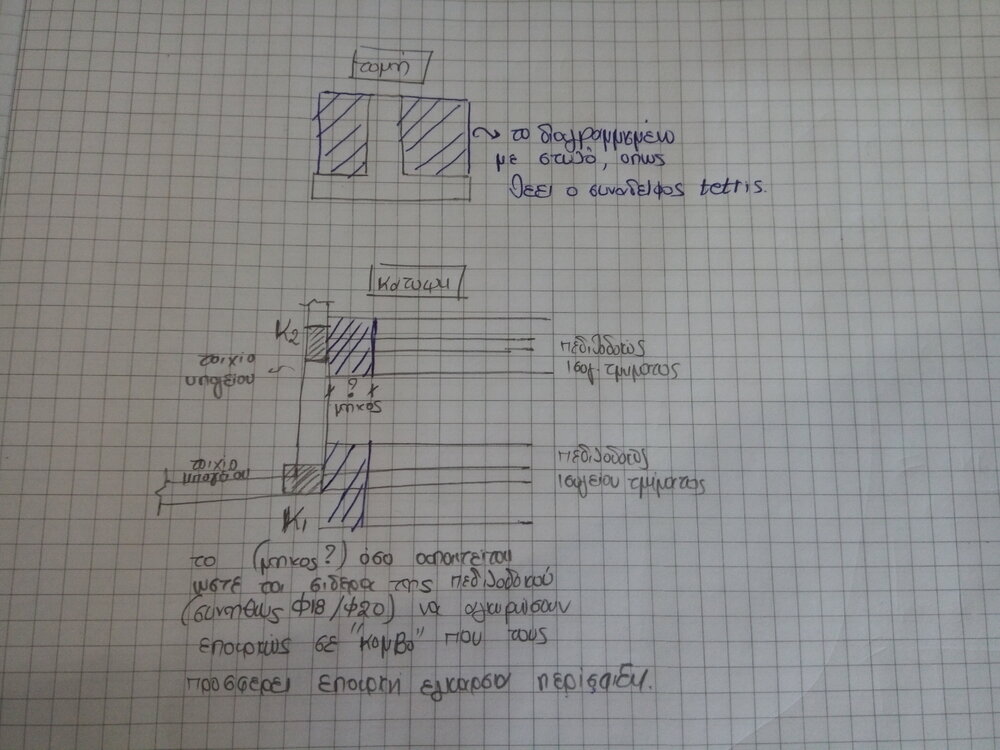 τομή
το διαγραμμισμένο
με στυλό, οπως
λεει ο συναδελφος tetris.
κατοψη
K2
οικια
πεδιλοδοκος
ισογ τμηματος
?
μηκος
πεδιλοδοκος
ισογειου τμηματος
οικια
K1
το (μηκος?) όσο απαιτείται
ωστε τα σιδερα της πεδιλοδοκού
(συνηθως Φ18/Φ20) να αγκυρώσουν
επαρκώς σε "κομβο" που τους
προσφερει επαρκή εγκαρσια περίσφιξη.